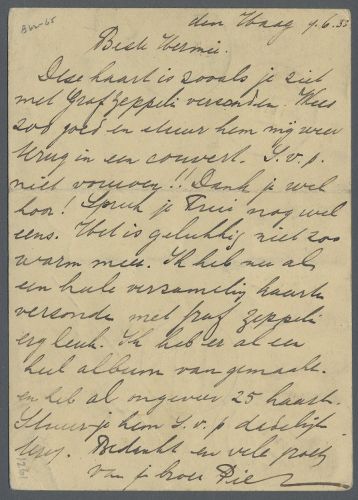 den Haag 9.6.33
Beste Hermie.
Deze kaart is zooals je ziet
met Graf Zeppelin verzonden. Wees
zoo goed en stuur hem mij weer
terug in een couvert. S.v.p.
niet vouwen!! Dank je wel
hoor! Spreek je Truus nog wel
eens. Het is gelukkig niet zoo
warm meer. Ik heb nu al
een heele verzameling kaarten
verzonden met graf Zeppelin
erg leuk. Ik heb er al een
heel album van gemaakt.
en heb al ongeveer 25 kaarten.
Stuur je hem S.v.p. dadelijk
terug. Bedankt en vele groeten
van je broer Piet